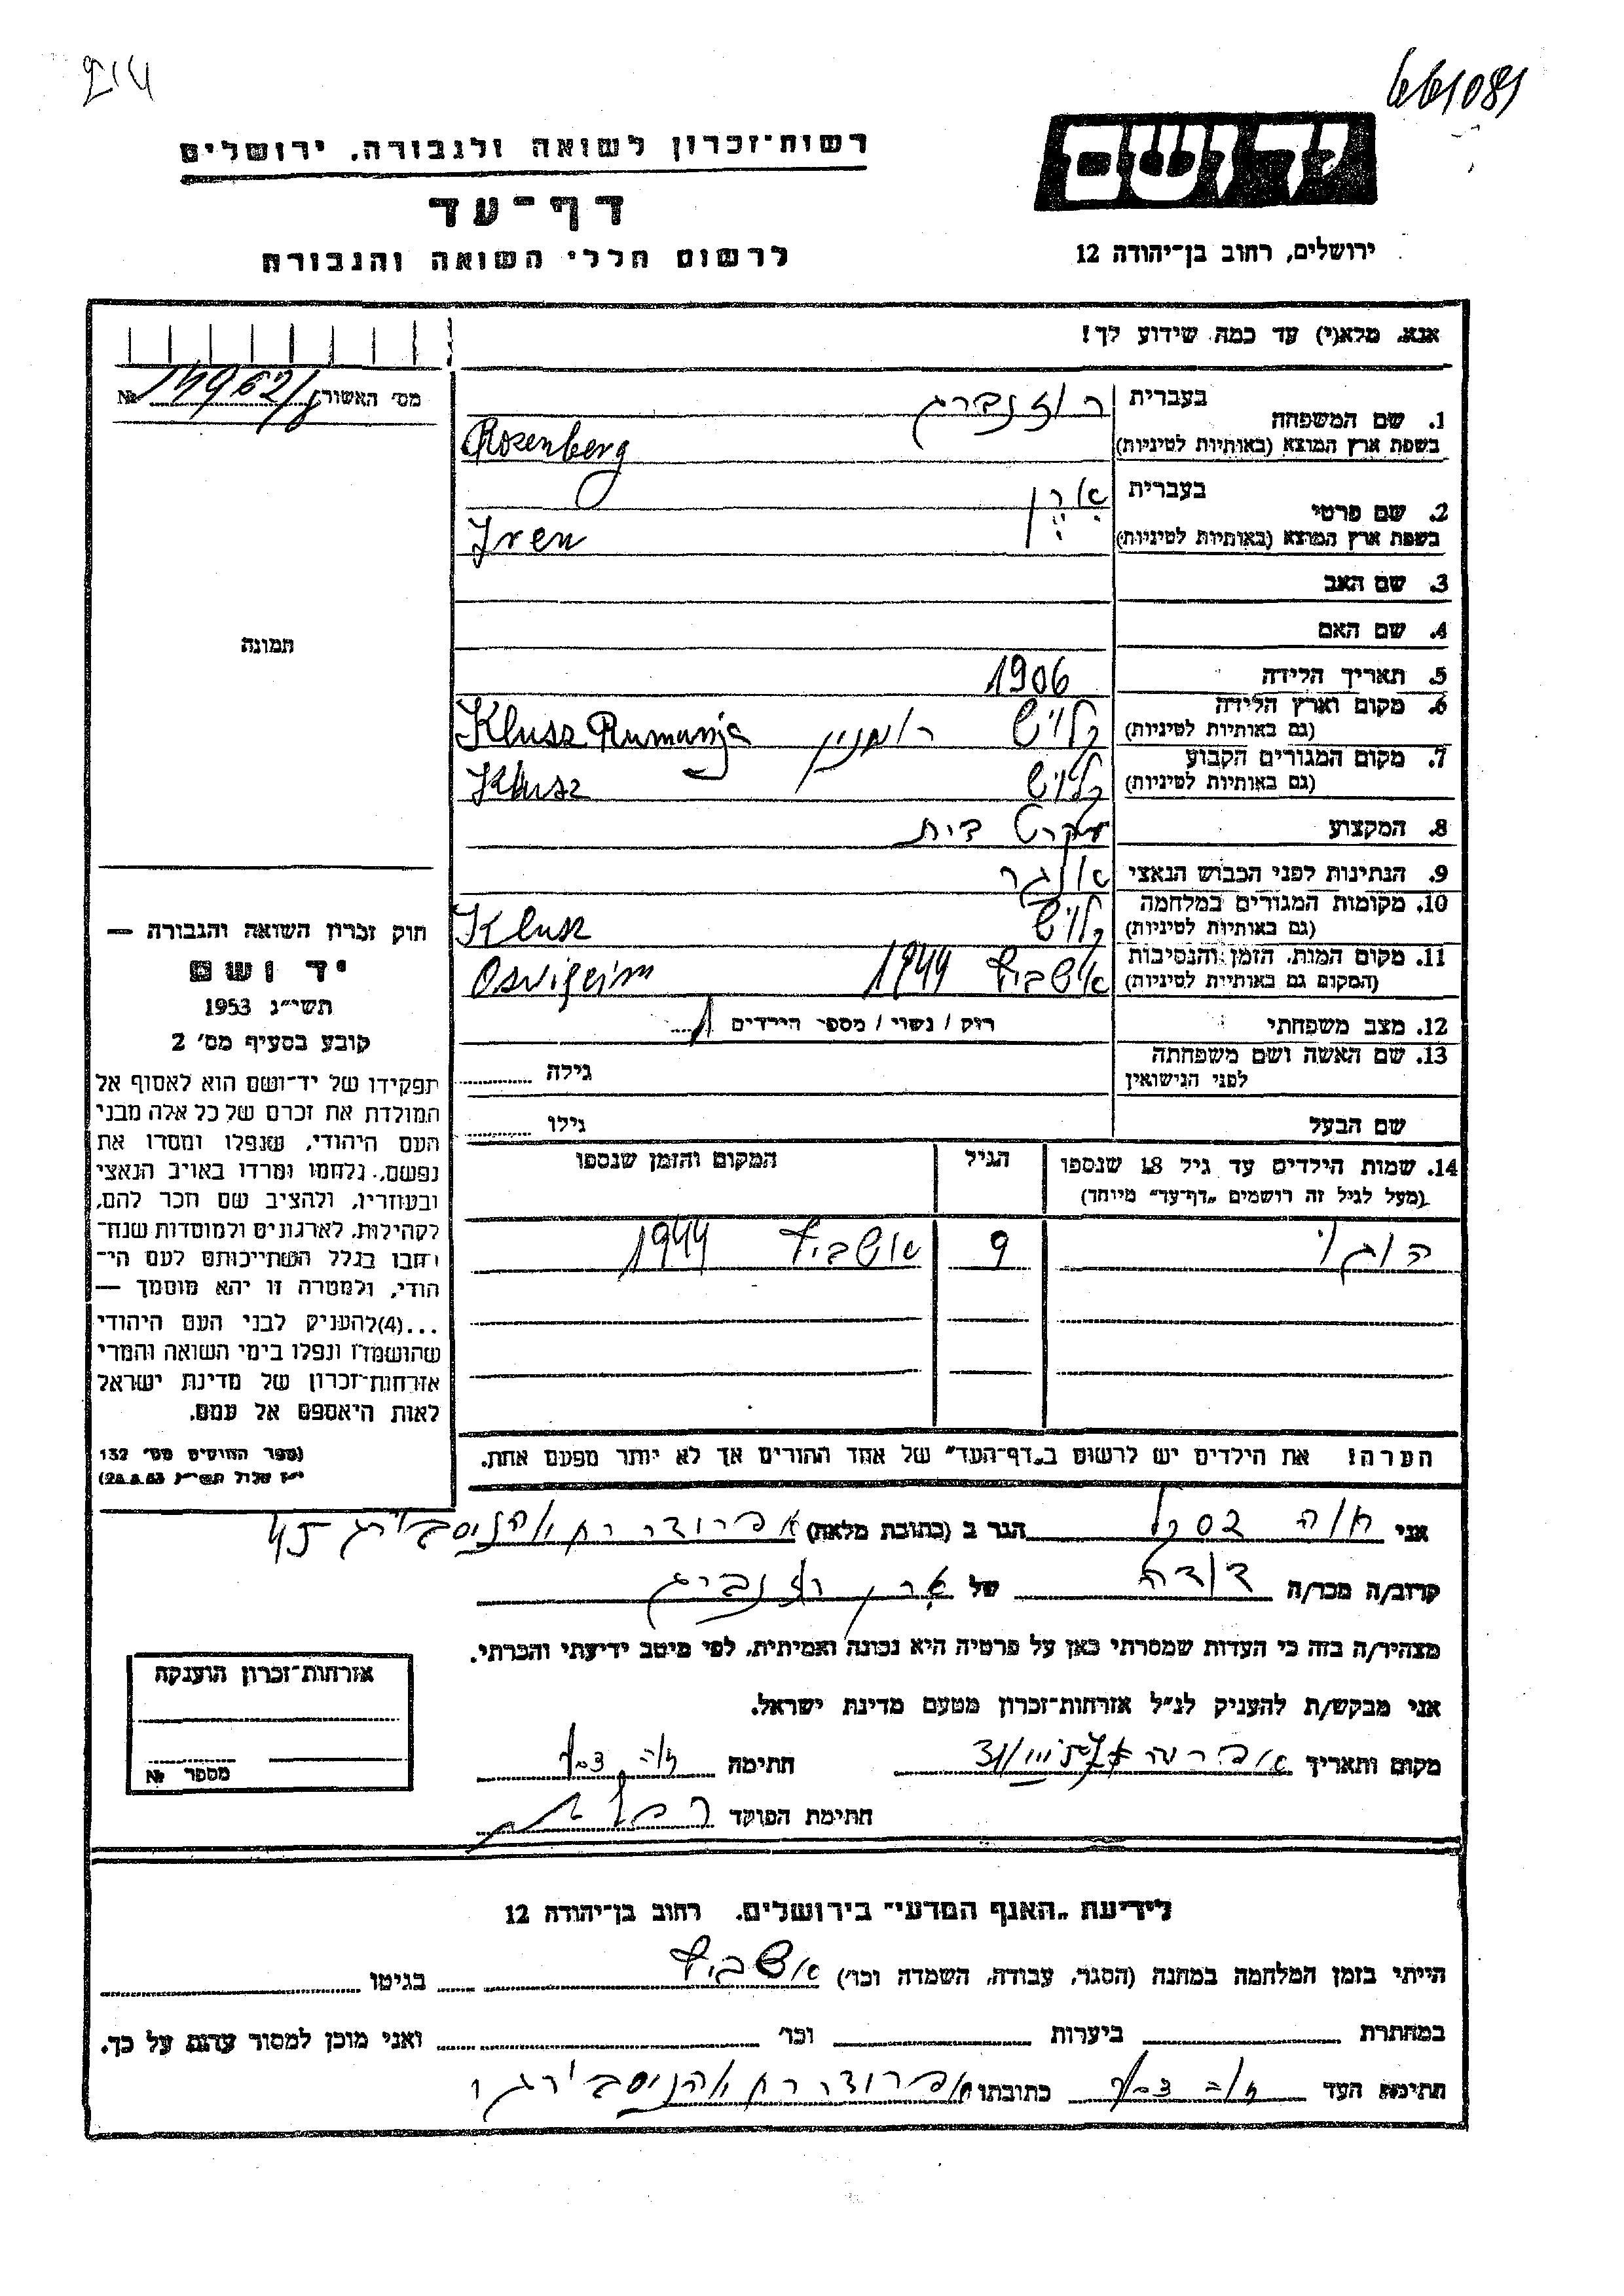 661081
רשות־זכרון לשואה ולגבורה, ירושלים
דף־עד
לרשום חללי השואה והגבורה
יד ושם
ירושלים, רחוב בן־יהודה 12
אנא, מלא(י) עד כמה שידוע לך!
מס׳ האשור №
1. שם המשפחה בעברית רוזנברג
בשפת ארץ המוצא (באותיות לטיניות) Rosenberg
2. שם פרטי בעברית אירן
בשפת ארץ המוצא (באותיות לטיניות) Iren
3. שם האב
4. שם האם
תמונה
5. תאריך הלידה 1906
6. מקום וארץ הלידה קלויש רומניה Klusz Rumanja
(גם באותיות לטיניות)
7. מקום המגורים הקבוע קלויש Klusz
(גם באותיות לטיניות)
8. המקצוע עקרת בית
9. הנתינות לפני הכבוש הנאצי
10. מקומות המגורים במלחמה קלויש Klusz
(גם באותיות לטיניות)
11. מקום המות, הזמן והנסיבות אושביץ 1944
(המקום גם באותיות לטיניות)
12. מצב משפחתי רוק / נשוי / מספר הילדים 1
13. שם האשה ושם משפחתה גילה
לפני הנישואין
שם הבעל גילו
14. שמות הילדים עד גיל 18 שנספו הגיל המקום והזמן שנספו
(מעל לגיל זה רושמים „דף־עד״ מיוחד)
9 אושביץ 1944
הערה! את הילדים יש לרשום ב„דף־העד״ של אחד ההורים אך לא יותר מפעם אחת.
חוק זכרון השואה והגבורה —
יד ושם
תשי״ג 1953
קובע בסעיף מס׳ 2
תפקידו של יד־ושם הוא לאסוף אל
המולדת את זכרם של כל אלה מבני
העם היהודי, שנפלו ומסרו את
נפשם, נלחמו ומרדו באויב הנאצי
ובעוזריו, ולהציב שם וזכר להם,
לקהילות, לארגונים ולמוסדות שנח־
רבו בגלל השתייכותם לעם הי־
הודי, ולמטרה זו יהא מוסמך —
...(4) להעניק לבני העם היהודי
שהושמדו ונפלו בימי השואה והמרי
אזרחות־זכרון של מדינת ישראל
לאות היאספם אל עמם.
(ספר החוקים מס׳ 132
י״ז אלול תשי״ג 28.8.53)
אני חוה הגר ב (כתובת מלאה)
קרוב/ה מכר/ה דודה של אירן רוזנברג
מצהיר/ה בזה כי העדות שמסרתי כאן על פרטיה היא נכונה ואמיתית, לפי מיטב ידיעתי והכרתי.
אני מבקש/ת להעניק לנ״ל אזרחות־זכרון מטעם מדינת ישראל.
מקום ותאריך חתימה
חתימת הפוקד
אזרחות־זכרון הוענקה
מספר №
לידיעת „האגף המדעי״ בירושלים, רחוב בן־יהודה 12
הייתי בזמן המלחמה במחנה (הסגר, עבודה, השמדה וכו׳) אושביץ בגיטו
במחתרת ביערות וכו׳ ואני מוכן למסור עדות על כך.
חתימת העד כתובתו